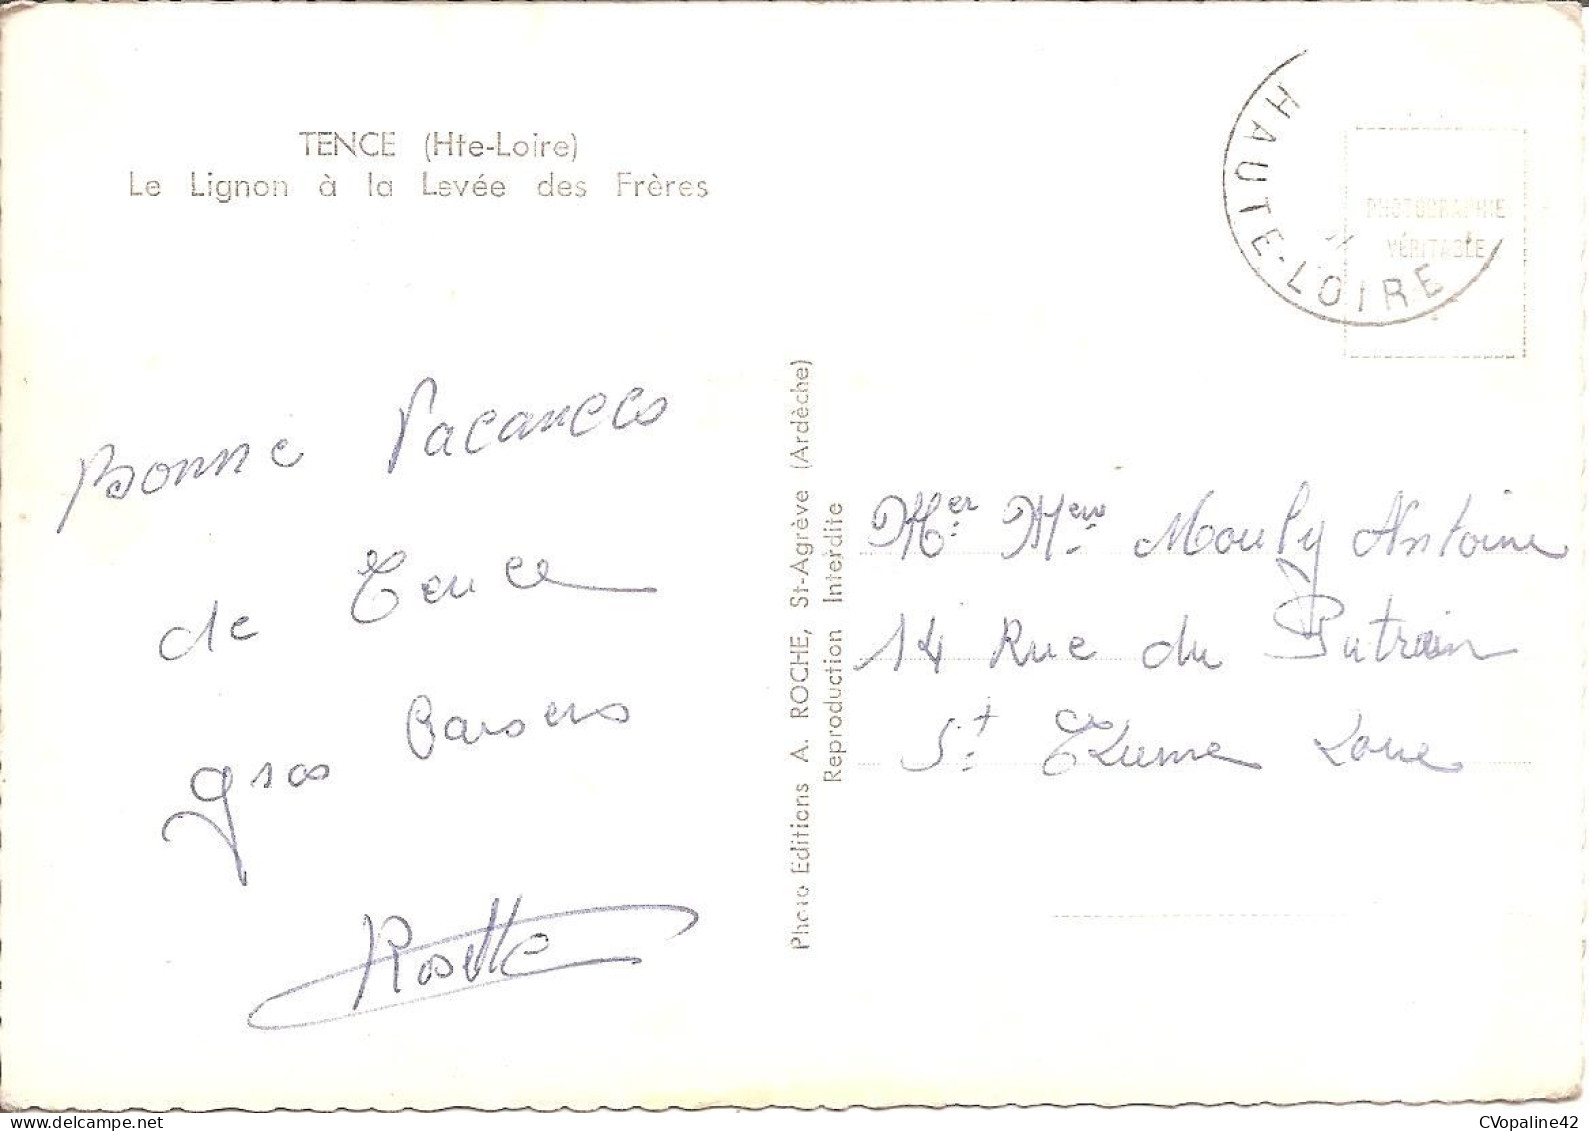 TENCE (Hte-Loire)
Le Lignon à la Levée des Frères
HAUTE-LOIRE
PHOTOGRAPHIE
VÉRITABLE
Bonne Vacances
de Tence
gros Baisers
Rosette
Photo Editions A. ROCHE, St-Agrève (Ardèche)
Reproduction Interdite
Mer Mem Mouly Antoine
14 Rue du
St Etienne Loire
CVopaline42